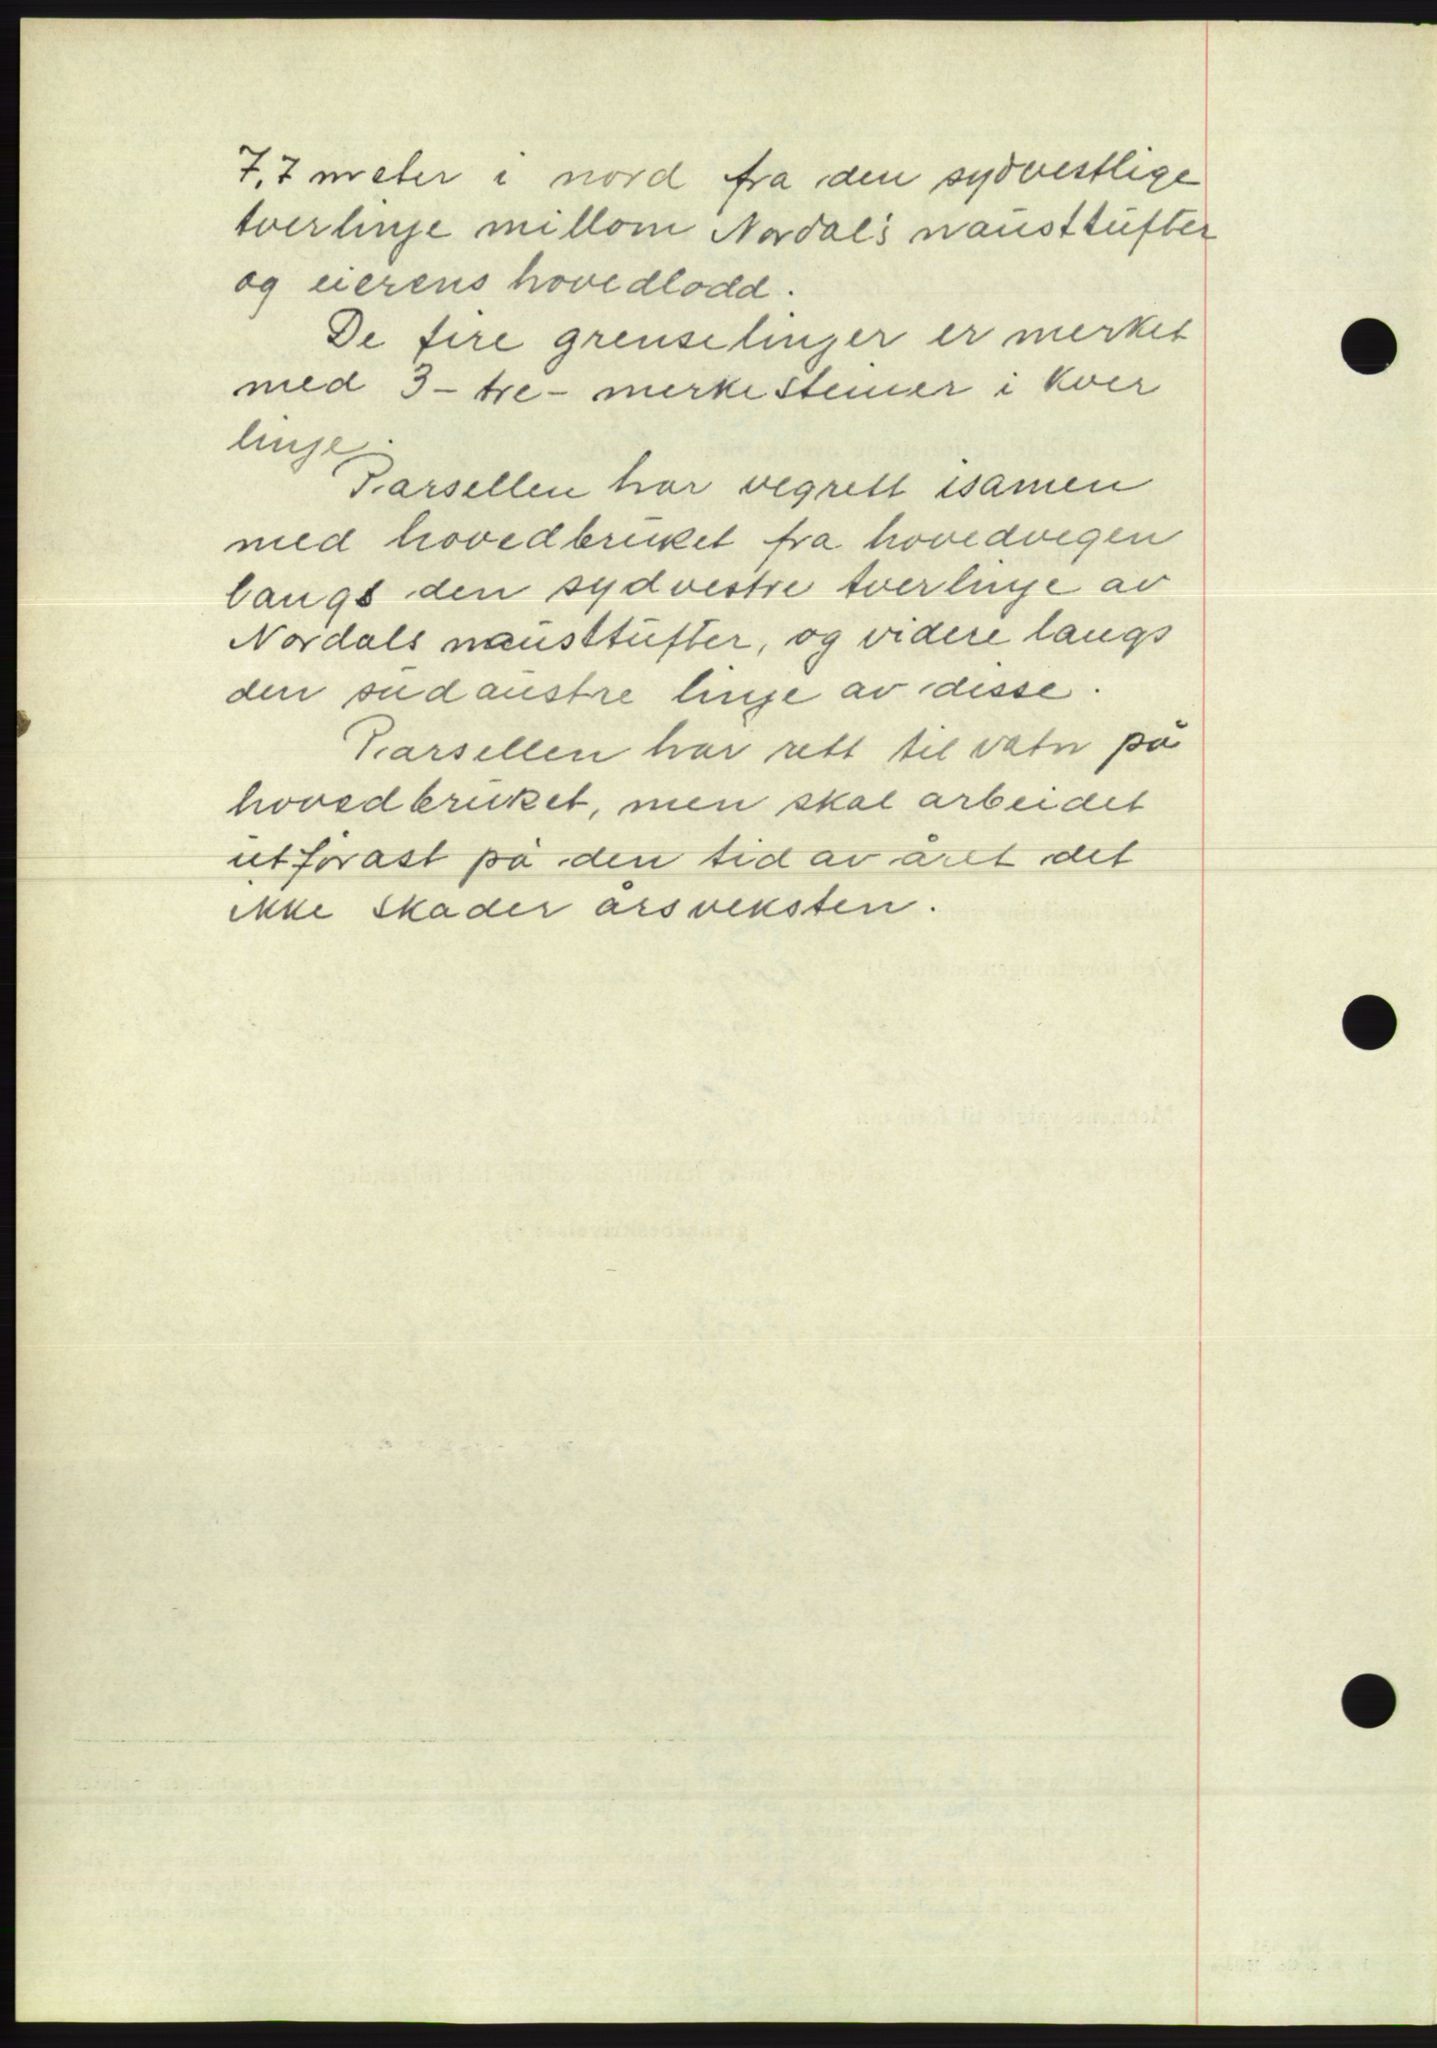 7,7 meter i nord fra den sydvestlige
tverlinje millom Nordal's nausttufter
og eierens hovedlodd.
De fire grenselinjer er merket
med 3 - tre - merkesteiner i kver
linje.
Parsellen har vegrett isamen
med hovedbruket fra hovedvegen
langs den sydvestre tverlinje av
Nordals nausttufter, og videre langs
den sudaustre linje av disse.
Parsellen har rett til vatn på
hovedbruket, men skal arbeidet
utförast på den tid av året det
ikke skader årsveksten.